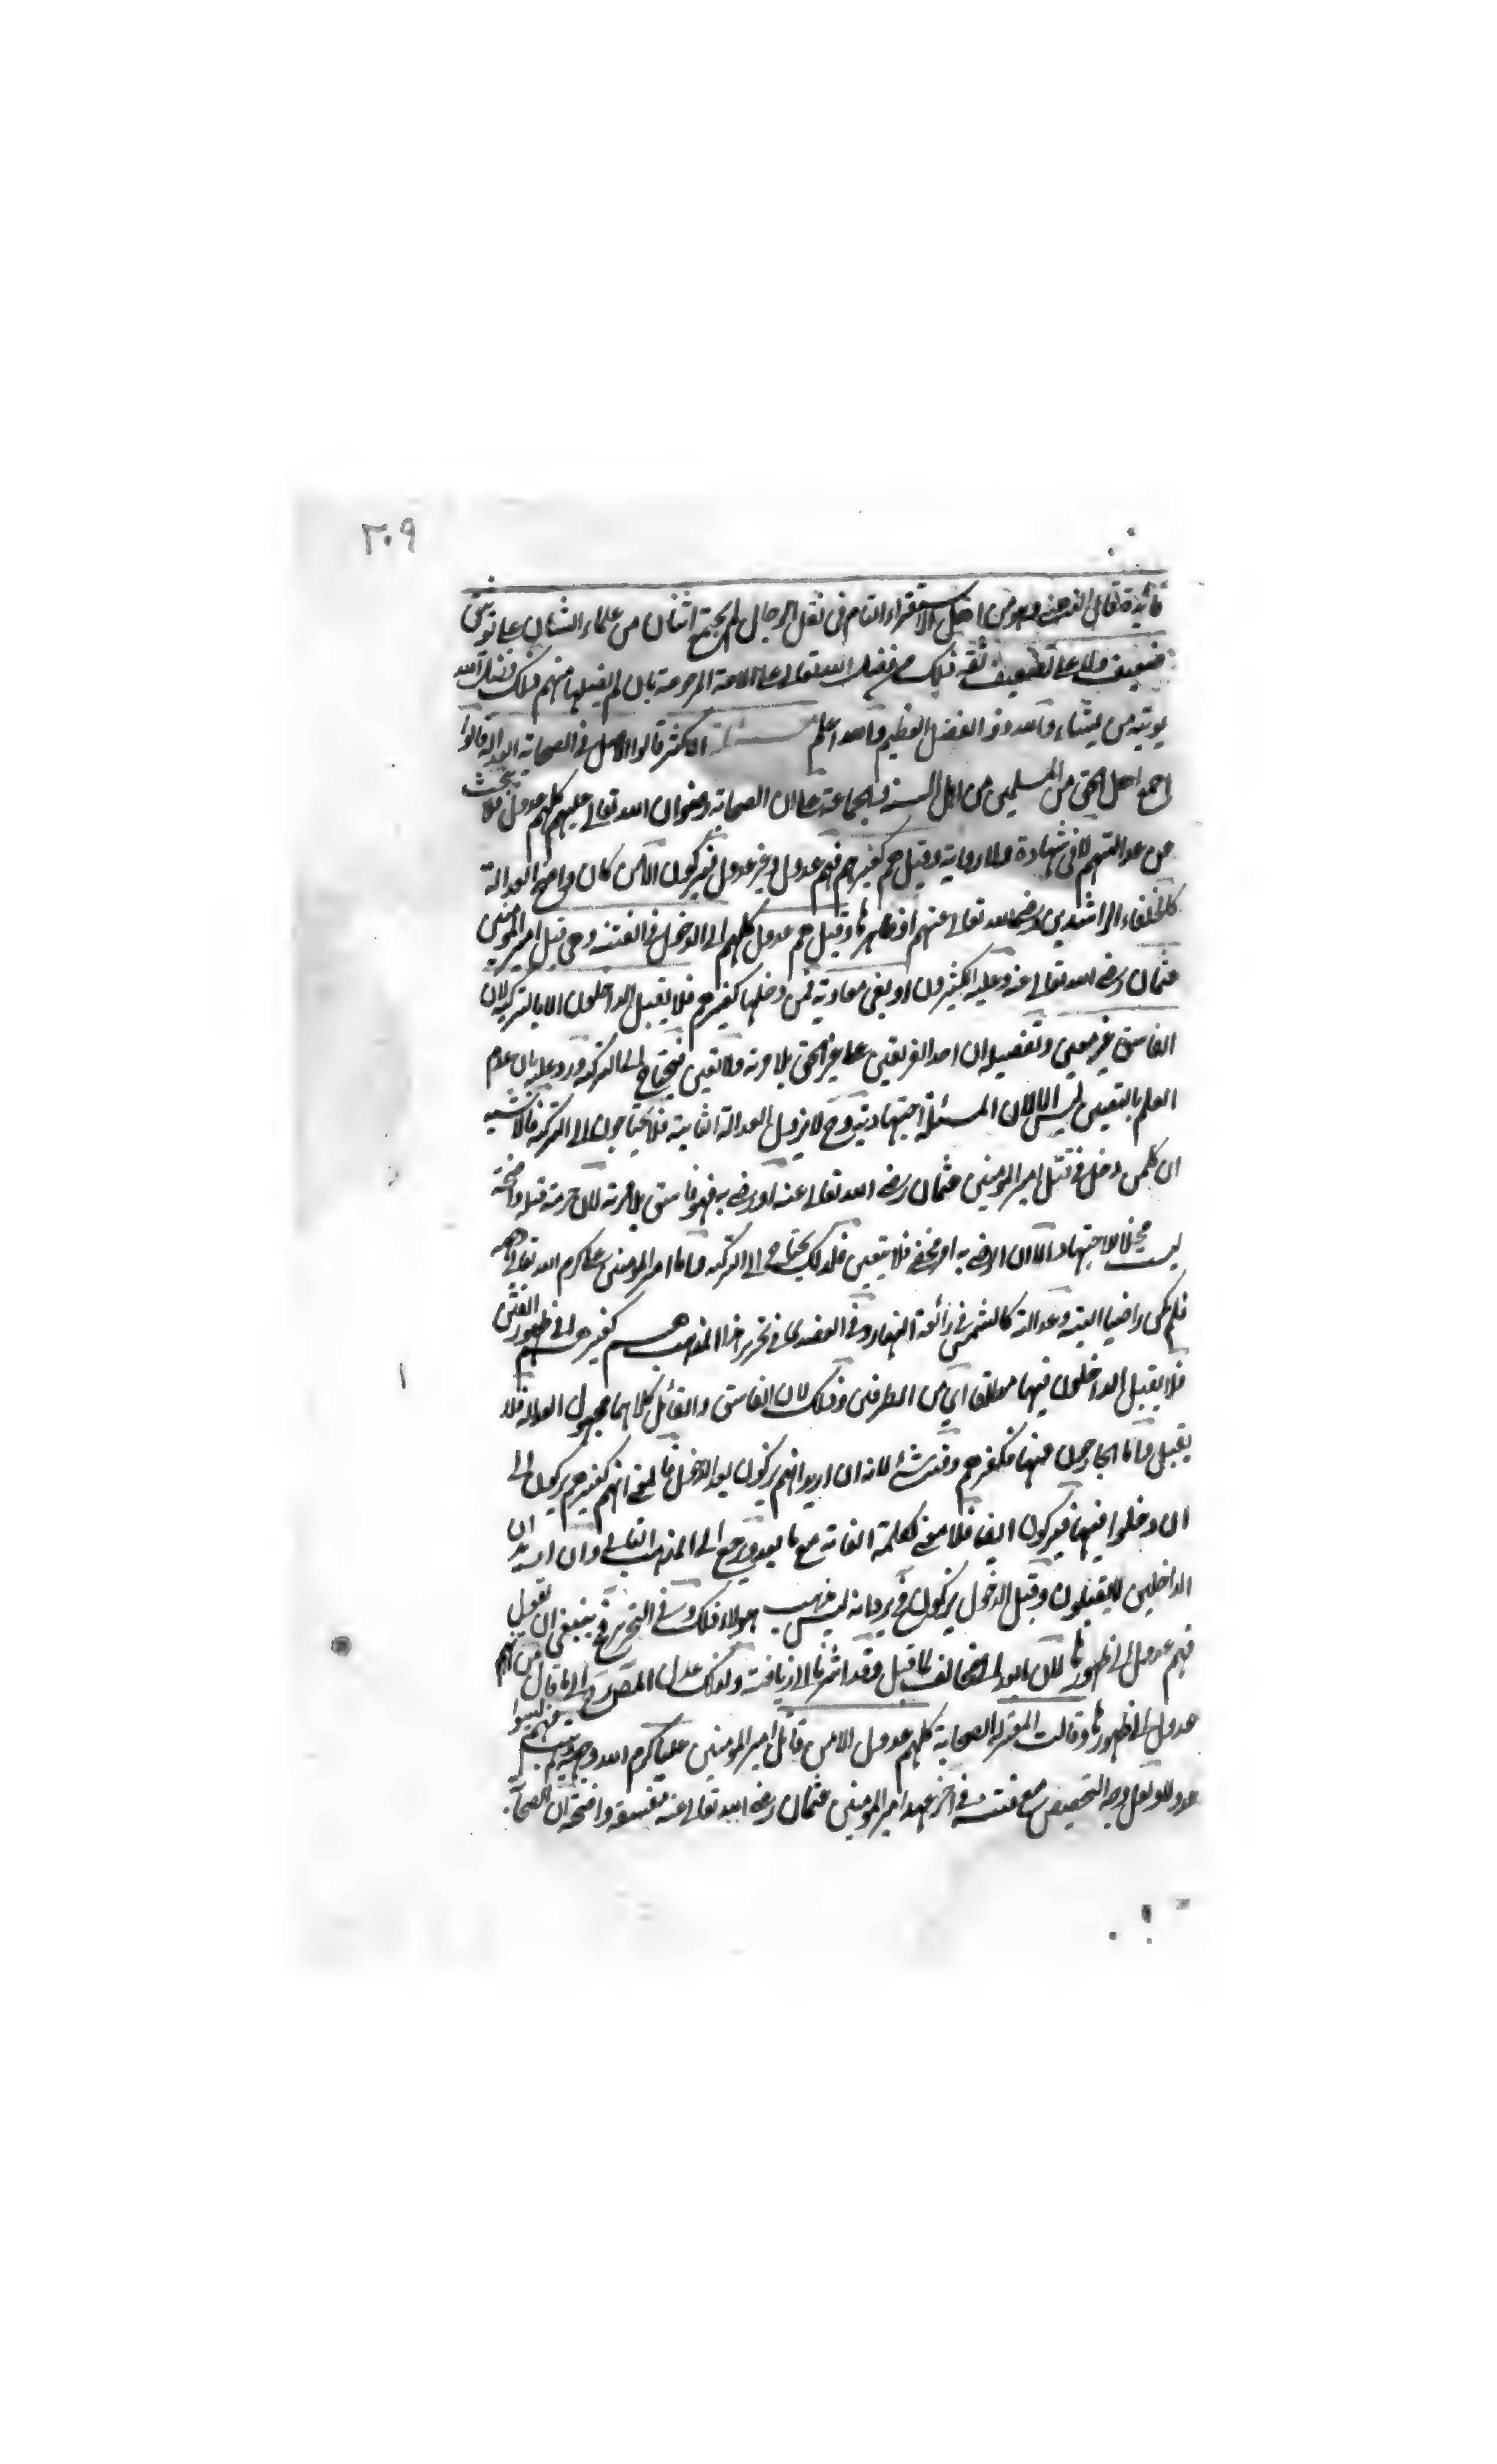 ٢٠٩
فائدة قال الذهبي وهو من اهل الاستقراء التام في نقل الرجال لم يجتمع اثنان من علماء الشان على توثيق
ضعيف ولا على تضعيف ثقة ذلك من فضل الله تعالى على الامة المرحومة بان لم منهم ذلك فضل الله
يوتيه من يشاء والله ذو الفضل العظيم والله اعلم مسئلة الاكثر قالوا الاصل في الصحابة العدالة قالوا
اجمع اهل الحق من المسلمين من اهل السنة والجماعة على ان الصحابة رضوان الله تعالى عليهم كلهم عدول فلا يبحث
عن عدالتهم لا في شهادة ولا رواية وقيل هم كغيرهم فهم عدول وغير عدول فيزكون الا من كان واضح العدالة
كالخلفاء الراشدين رضي الله تعالى عنهم او ظاهرها وقيل هم عدول كلهم الى الدخول في الفتنة وهي قتل امير المومنين
عثمان رضي الله تعالى عنه وعليه الكثيرون او بغي معاوية فمن دخلها كغيرهم فلا يقبل الداخلون الا بالتزكية لان
الفاسق غير معين وتفصيله ان احد الفريقين على غير الحق بلا مرية ولا تعين فيحتاج الى التزكية ورد عليه بان عدم
العلم بالتعيين ليس الا لان المسئلة اجتهادية وح لا تزول العدالة الثابتة فلا يحتاجون الى التزكية فالاشبه
ان كل من دخل في قتل امير المومنين عثمان رضي الله تعالى عنه او رضي به فهو فاسق بلا مرية لان حرمة قتله واضحة
ليست محلا للاجتهاد الا ان الرضي به امر مخفي فلا يتعين فلذلك يحتاج الى التزكية واما امير المومنين علي كرم الله تعالى وجهه
فلم يكن راضيا البتة وعدالته كالشمس في رائعة النهار وفي العضدى في تحرير هذا المذهب هم كغيرهم الى ظهور الفتن
فلا يقبل الداخلون فيها مطلقا اي من الطرفين وذلك لان الفاسق والقائل كلاهما مجهول العدالة فلا
يقبل واما الخارجون عنها فكغيرهم وفيه شئ لانه ان اريد انهم يزكون بعد الدخول فالمعنى انهم كغيرهم يزكون الى
ان دخلوا فيها فيزكون ايضا فلا معنى لكلمة الغاية مع ما بعده ويرجع الى المذهب الثاني وان اريد ان
الداخلين لا يقبلون وقبل الدخول يزكون فيرد انه ليس مذهب هولاء ذلك وفي التحرير ح ينبغي ان نقول
فهم عدول الى ظهورها لان ما بعد الى مخالف لما قبل وقد اشرنا الى زيافته ولذلك عدل المصرح الى ما قال من انهم
عدول الى ظهورها وقالت المعتزلة الصحابة كلهم عدول الا من قاتل امير المومنين عليا كرم الله وجهه فانهم ليسوا
عدولا ولعل وجه التخصيص مع فتنة في اخر عهد امير المومنين عثمان رضي الله تعالى عنه مفسقة واضحة ان الصحا